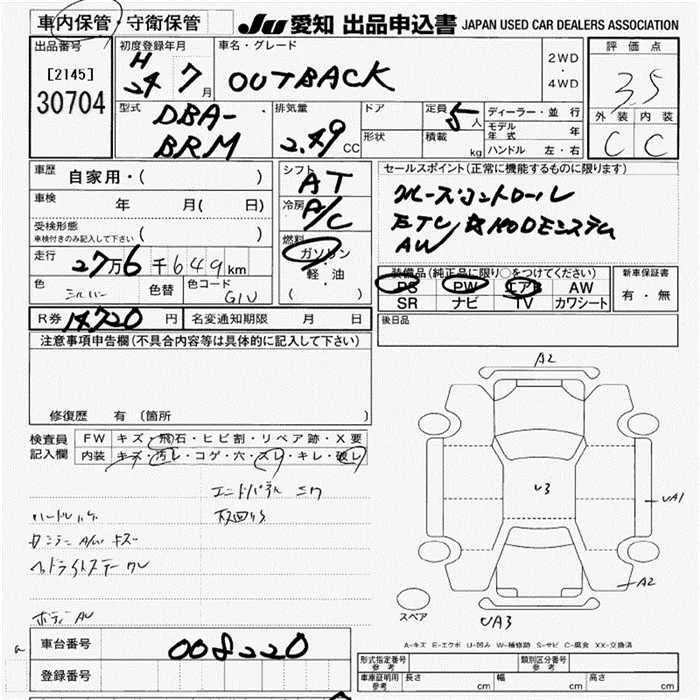 車内保管・守衛保管
JU 愛知 出品申込書 JAPAN USED CAR DEALERS ASSOCIATION
出品番号
[2145]
30704
初度登録年月
H 24 7月
車名・グレード
OUTBACK
2WD
・
4WD
評価点
3.5
型式
DBA-
BRM
排気量
2.49 CC
ドア
形状
定員 5人
積載 kg
ディーラー・並行
モデル年式 年
ハンドル 左・右
外装 内装
C C
車歴
自家用・( )
車検
年 月( 日)
受検形態
車検付きのみ記入して下さい ( )
走行
27万6千649km
色 シルバー 色替 色コード G1U
シフト AT
冷房 A/C
燃料
ガソリン
・
軽・油
( )
セールスポイント(正常に機能するものに限ります)
クルーズコントロール
ETC
AW
装備品(純正品に限り○をつけてください)
PS PW エアB AW
SR ナビ TV カワシート
新車保証書
有・無
R券 14720 円 名変通知期限 月 日
後日品
注意事項申告欄(不具合内容等は具体的に記入して下さい)
修復歴 有 (箇所 )
検査員
記入欄
FW キズ・飛石・ヒビ割・リペア跡・X要
内装 キズ・汚レ・コゲ・穴・スレ・キレ・破レ
A2
U3
UA1
A2
UA3
スペア
A-キズ E-エクボ U-凹み W-補修跡 S-サビ C-腐食 XX-交換済
車台番号 008220
登録番号
形式指定番号 参考
類別区分番号 参考
車庫証明用 参考 長さ cm 幅 cm 高さ cm